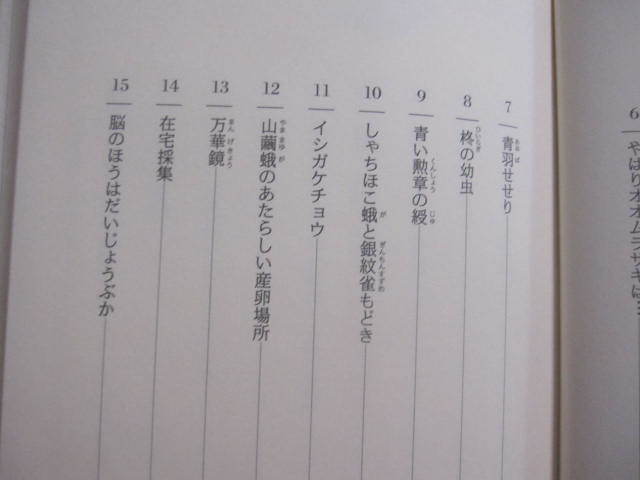 6 やはりオオムラサキは
7 青羽せせり
8 柊の幼虫
9 青い勲章の綬
10 しゃちほこ蛾と銀紋雀もどき
11 イシガケチョウ
12 山繭蛾のあたらしい産卵場所
13 万華鏡
14 在宅採集
15 脳のほうはだいじょうぶか